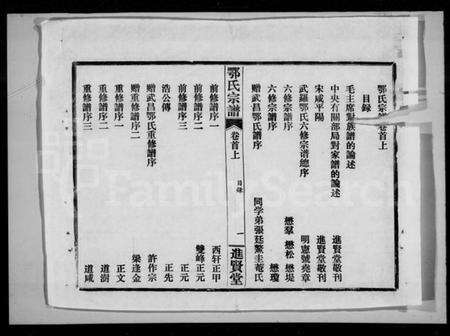 鄂氏宗譜卷首上
目録
毛主席對族譜的論述
中央有關部局對家譜的論述 進賢堂敬刊
宋咸平陽 進賢堂敬刊
武羅鄂氏六修宗譜總序 明憲號堯章
六修宗譜序 懋羣 懋松 懋堤
六修宗譜序 懋瓊
贈武昌鄂氏譜序 同学弟張廷繁圭菴氏
鄂氏宗譜 卷首上 目録 一 進賢堂
前修譜序一 西轩正甲
前修譜序二 雙峰正元
前修譜序三 正元
浩公傳 正先
贈武昌鄂氏重修譜序 許作宗
贈重修譜序二 梁逢金
重修譜序一 正文
重修譜序二 道澍
重修譜序三 道咸
FamilySearch